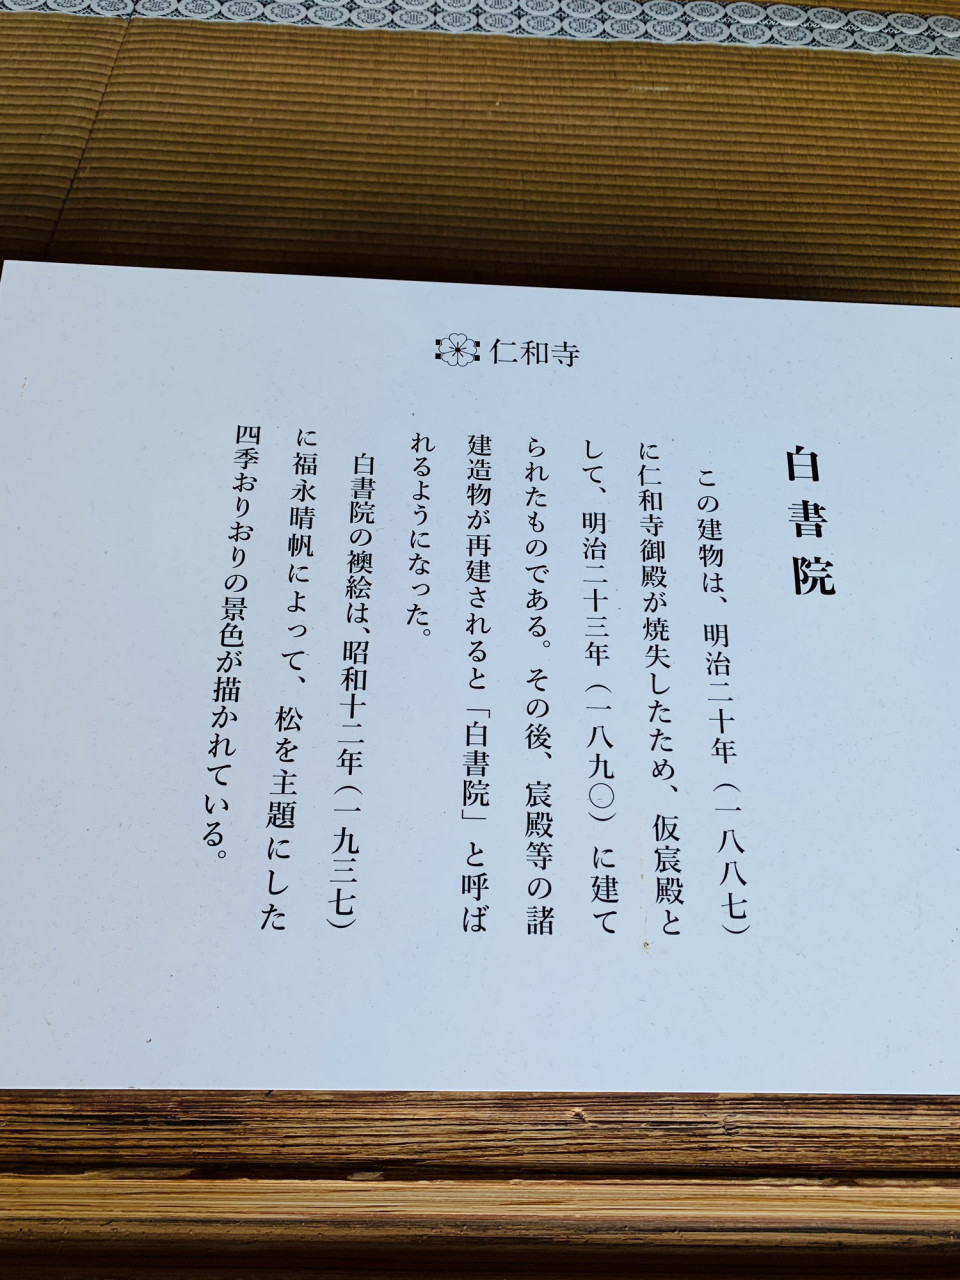 仁和寺
白書院
この建物は、明治二十年（一八八七）
に仁和寺御殿が焼失したため、仮宸殿と
して、明治二十三年（一八九〇）に建て
られたものである。その後、宸殿等の諸
建造物が再建されると「白書院」と呼ば
れるようになった。
白書院の襖絵は、昭和十二年（一九三七）
に福永晴帆によって、松を主題にした
四季おりおりの景色が描かれている。